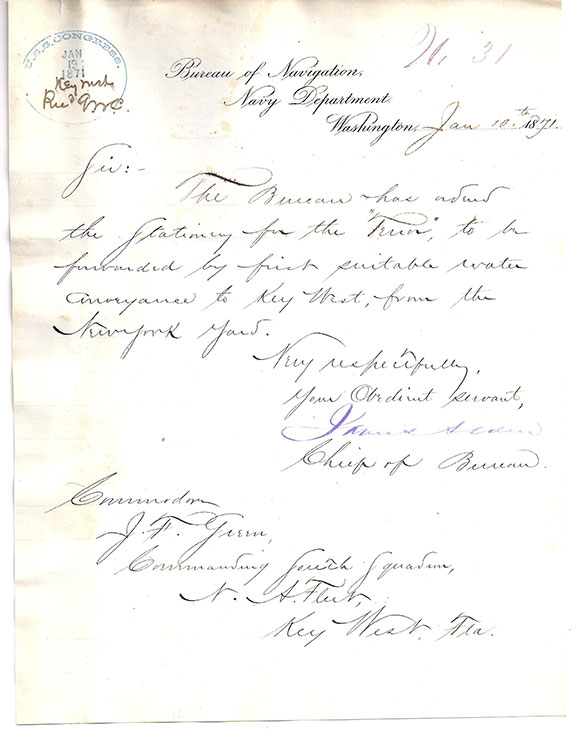 U.S.S. CONGRESS.
JAN
19
1871
Key West
No. 31
Bureau of Navigation,
Navy Department.
Washington, Jan 10th 1871.
Sir:-
The Bureau has ordered
the Stationery for the "Terror", to be
forwarded by first suitable water
conveyance to Key West, from the
New York Yard.
Very respectfully,
Your Obedient servant,
Chief of Bureau.
Commodore
J. F. Green,
Commanding South Squadron,
N. A. Fleet,
Key West, Fla.